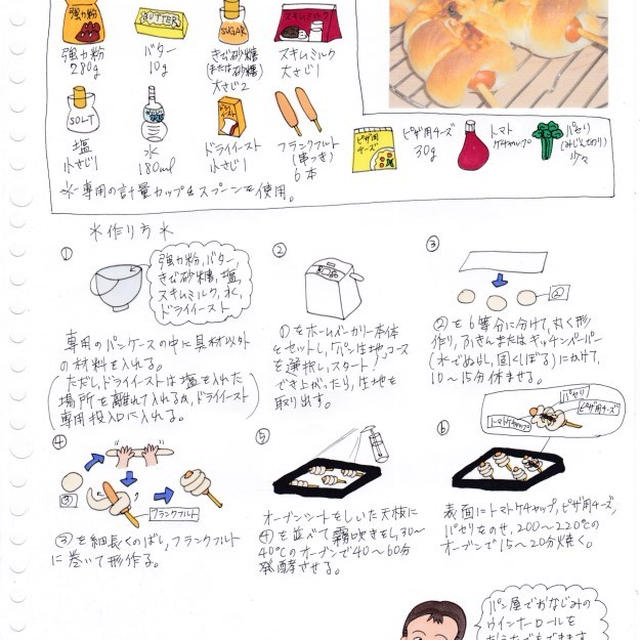 強力粉
BUTTER
SUGAR
スキムミルク
強力粉
280g
バター
10g
きび砂糖
(または砂糖)
大さじ2
スキムミルク
大さじ1
SOLT
ドライイースト
塩
小さじ1
水
180ml
ドライイースト
小さじ1
フランクフルト
(串つき)
6本
ピザ用
チーズ
ピザ用チーズ
30g
トマト
ケチャップ
パセリ
(みじん切り)
少々
※専用の計量カップ&スプーンを使用。
＊作り方＊
①
強力粉,バター,
きび砂糖,塩,
スキムミルク,水,
ドライイースト
専用のパンケースの中に具材以外
の材料を入れる。
(ただし,ドライイーストは塩を入れた
場所を離れて入れるか,ドライイースト
専用投入口に入れる。)
②
①をホームベーカリー本体
にセットし,「パン生地」コース
を選択し,スタート!
でき上がったら,生地を
取り出す。
③
②
②を6等分に分けて,丸く形
作り,ふきんまたはキッチンペーパー
(水でぬらし,固くしぼる)にかけて,
10〜15分休ませる。
④
③
フランクフルト
③を細長くのばし,フランクフルト
に巻いて形作る。
⑤
オーブンシートをしいた天板に
④を並べて霧吹きをし,30〜
40℃のオーブンで40〜60分
発酵させる。
⑥
パセリ
ピザ用チーズ
トマトケチャップ
表面にトマトケチャップ,ピザ用チーズ,
パセリをのせ,200〜220℃の
オーブンで15〜20分焼く。
パン屋でおなじみの
ウインナーロールを